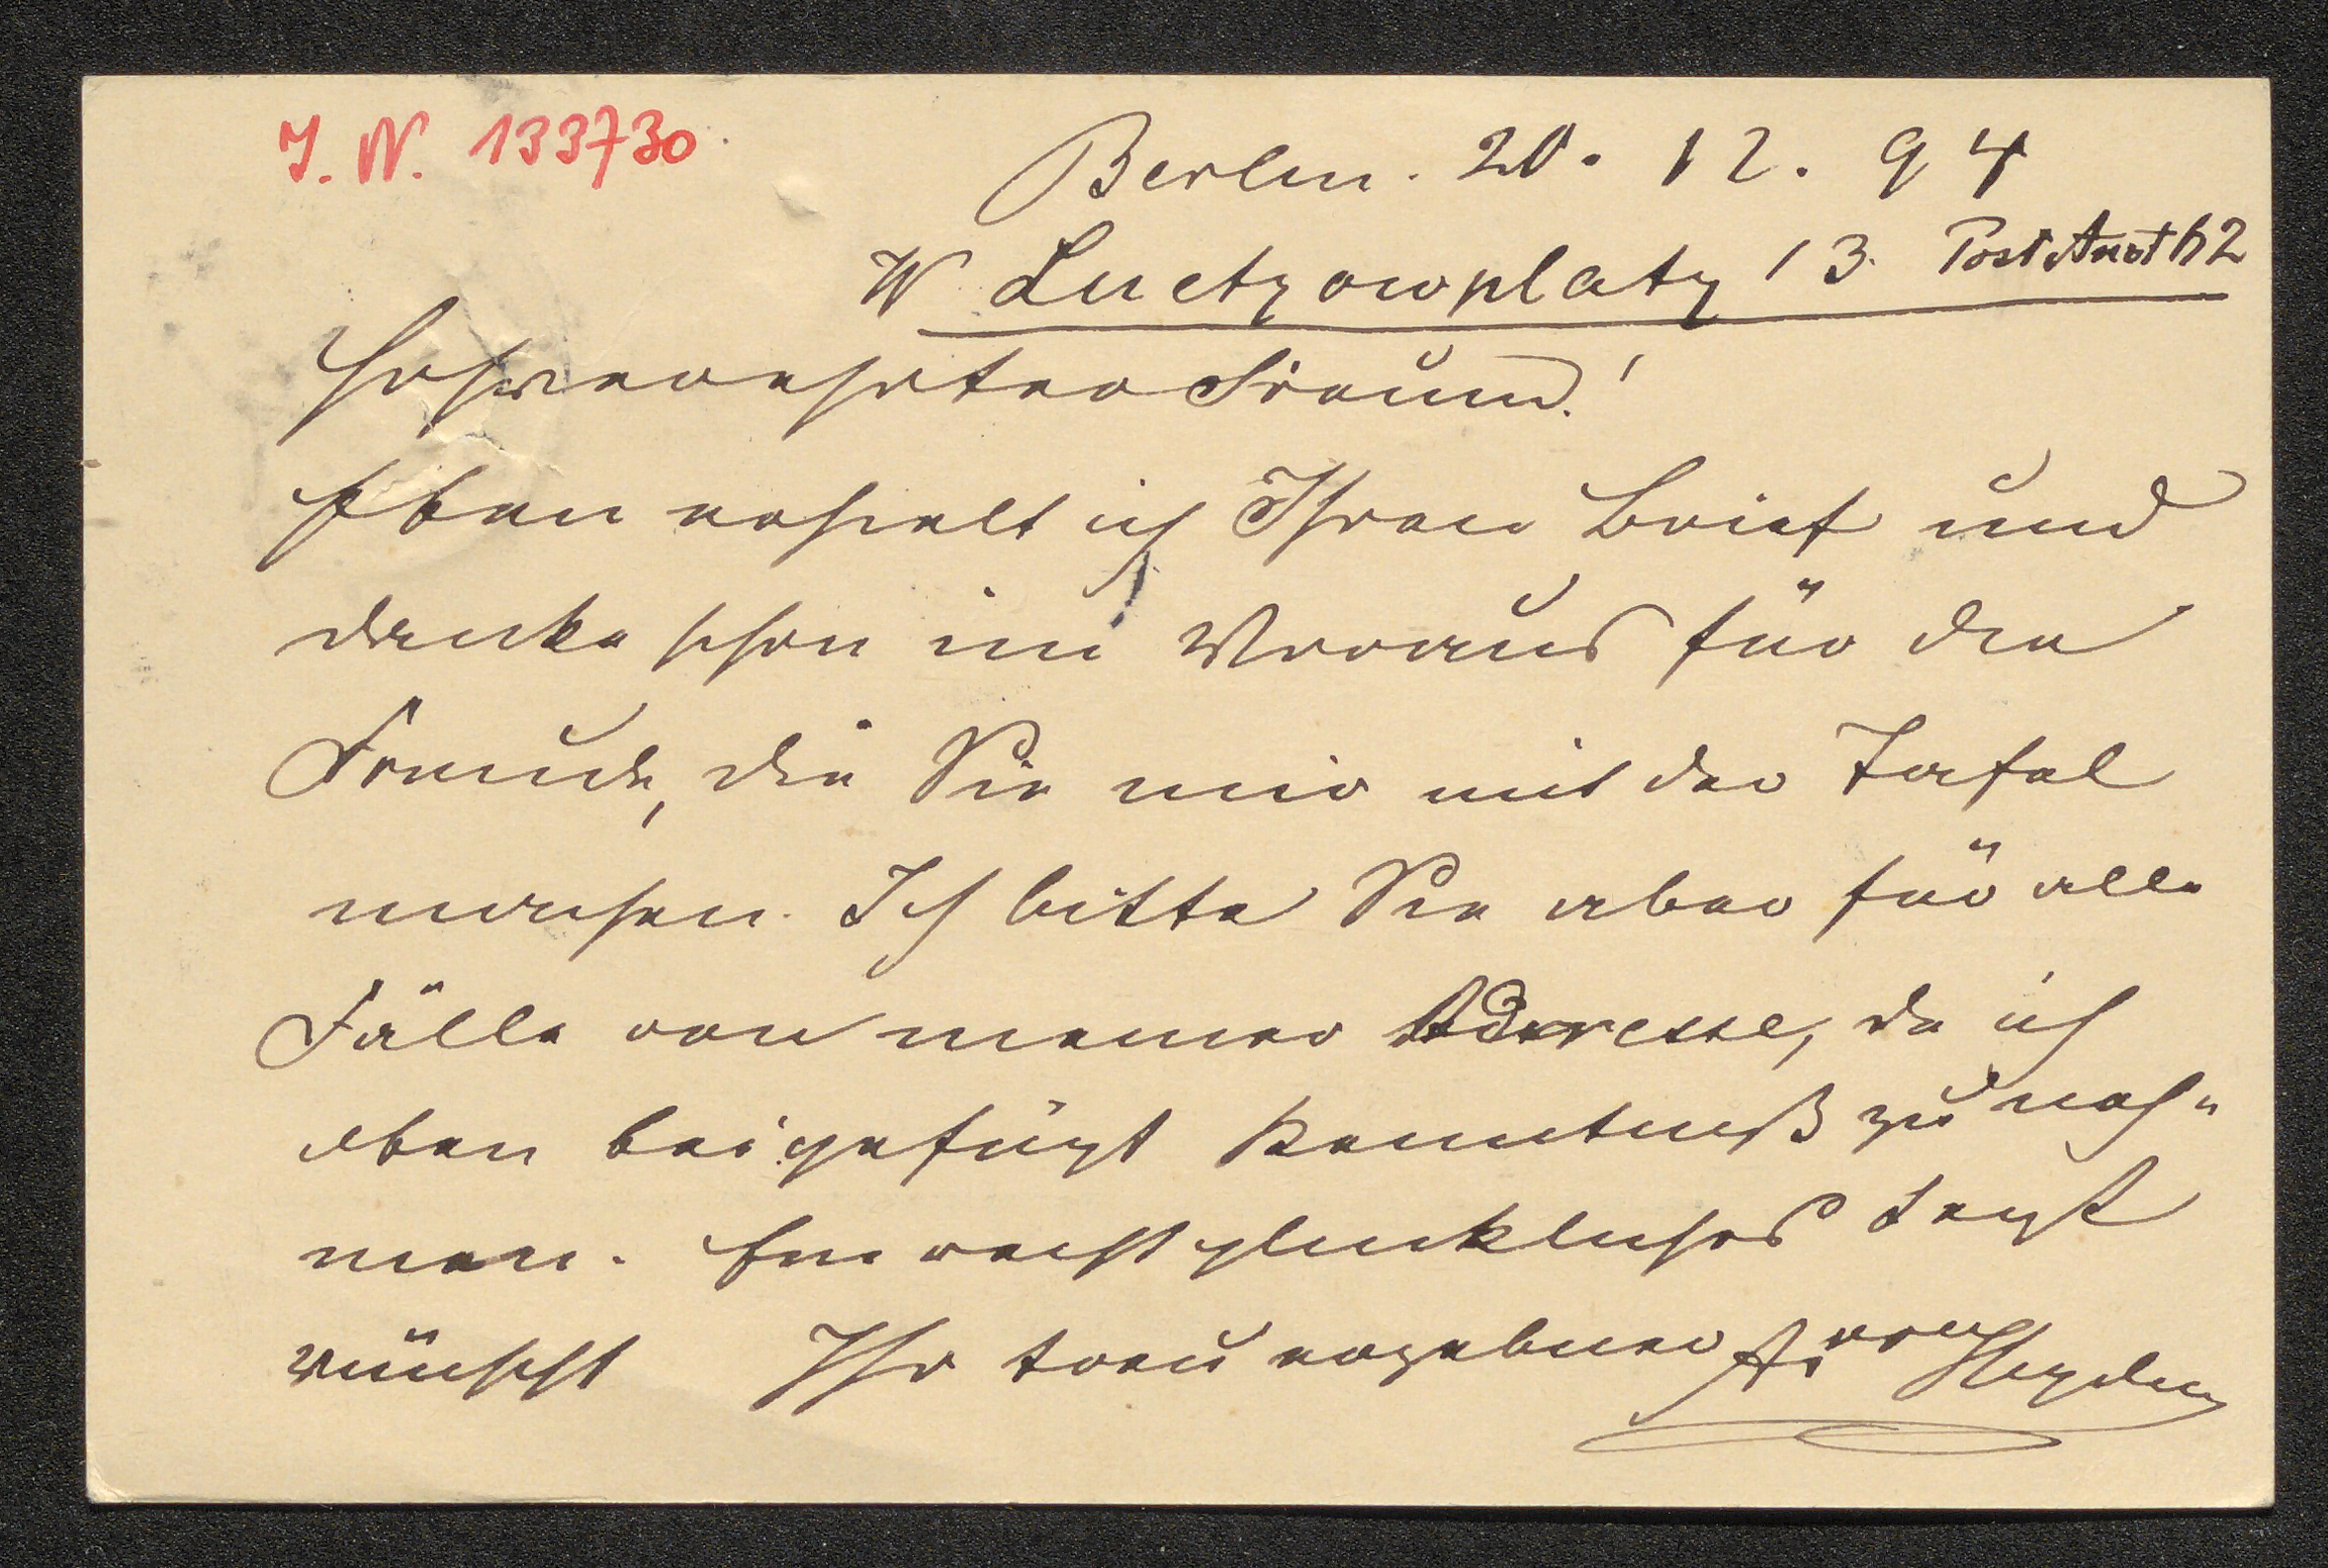 J. N. 133730
Berlin. 20. 12. 94
W Luetzowplatz 13. Post Amt 62
Hochverehrter Freund!
Eben erhielt ich Ihren Brief und
danke schon im Voraus für die
Freude, die Sie mir mit der Tafel
machen. Ich bitte Sie aber für alle
Fälle von meiner Adresse, die ich
oben beigefügt Kenntniß zu neh-
men. Ein recht glückliches Fest
wünscht Ihr treu ergebener A. von Heyden